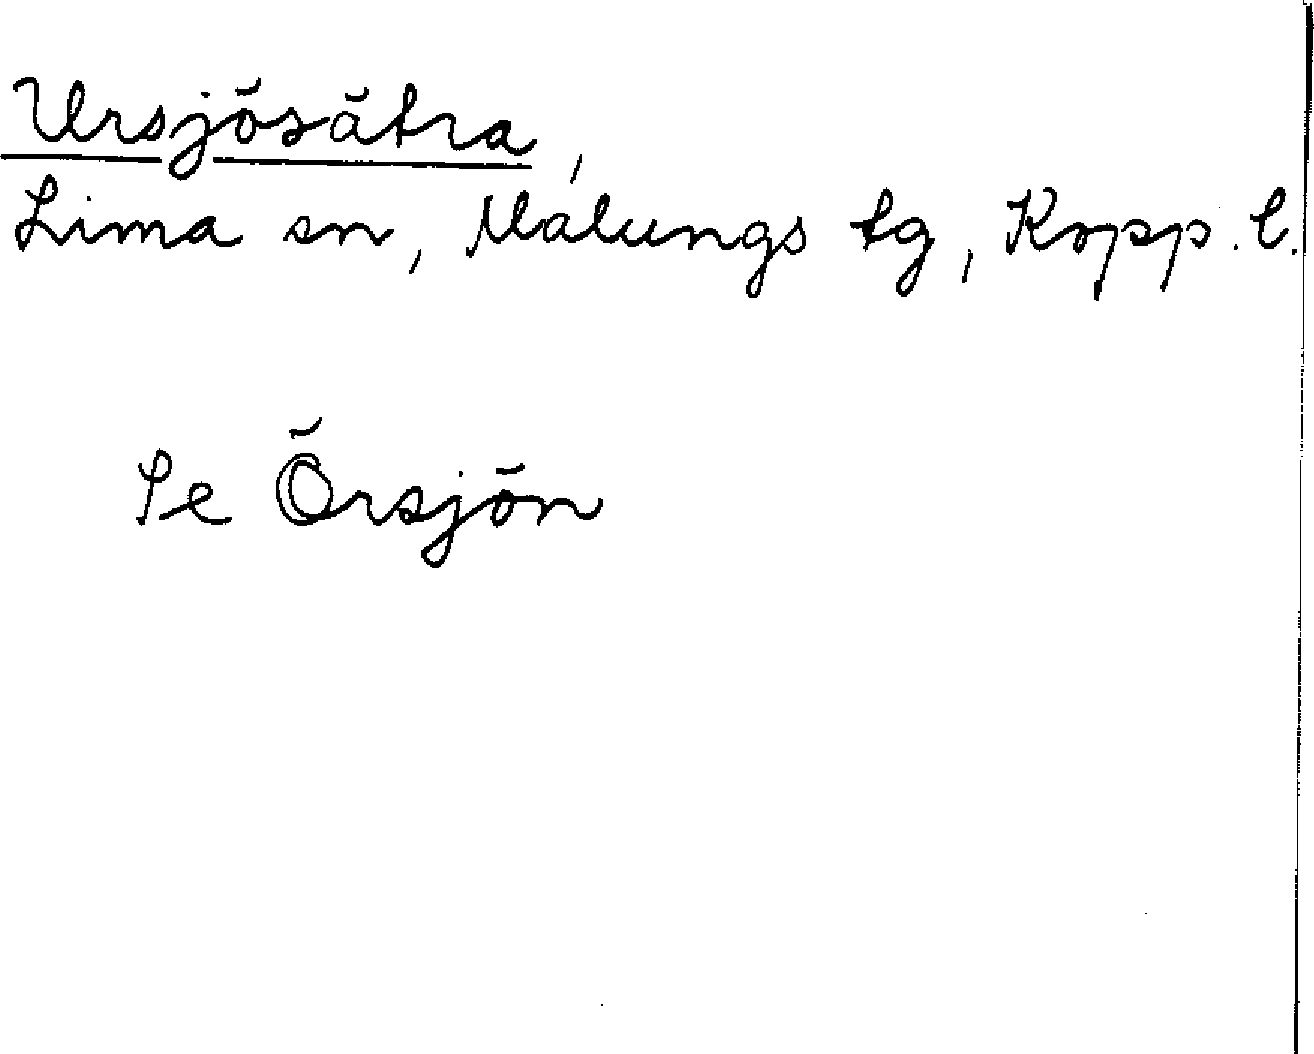 Ursjösätra,
Lima sn, Malungs tg, Kopp. l.
Se Örsjön